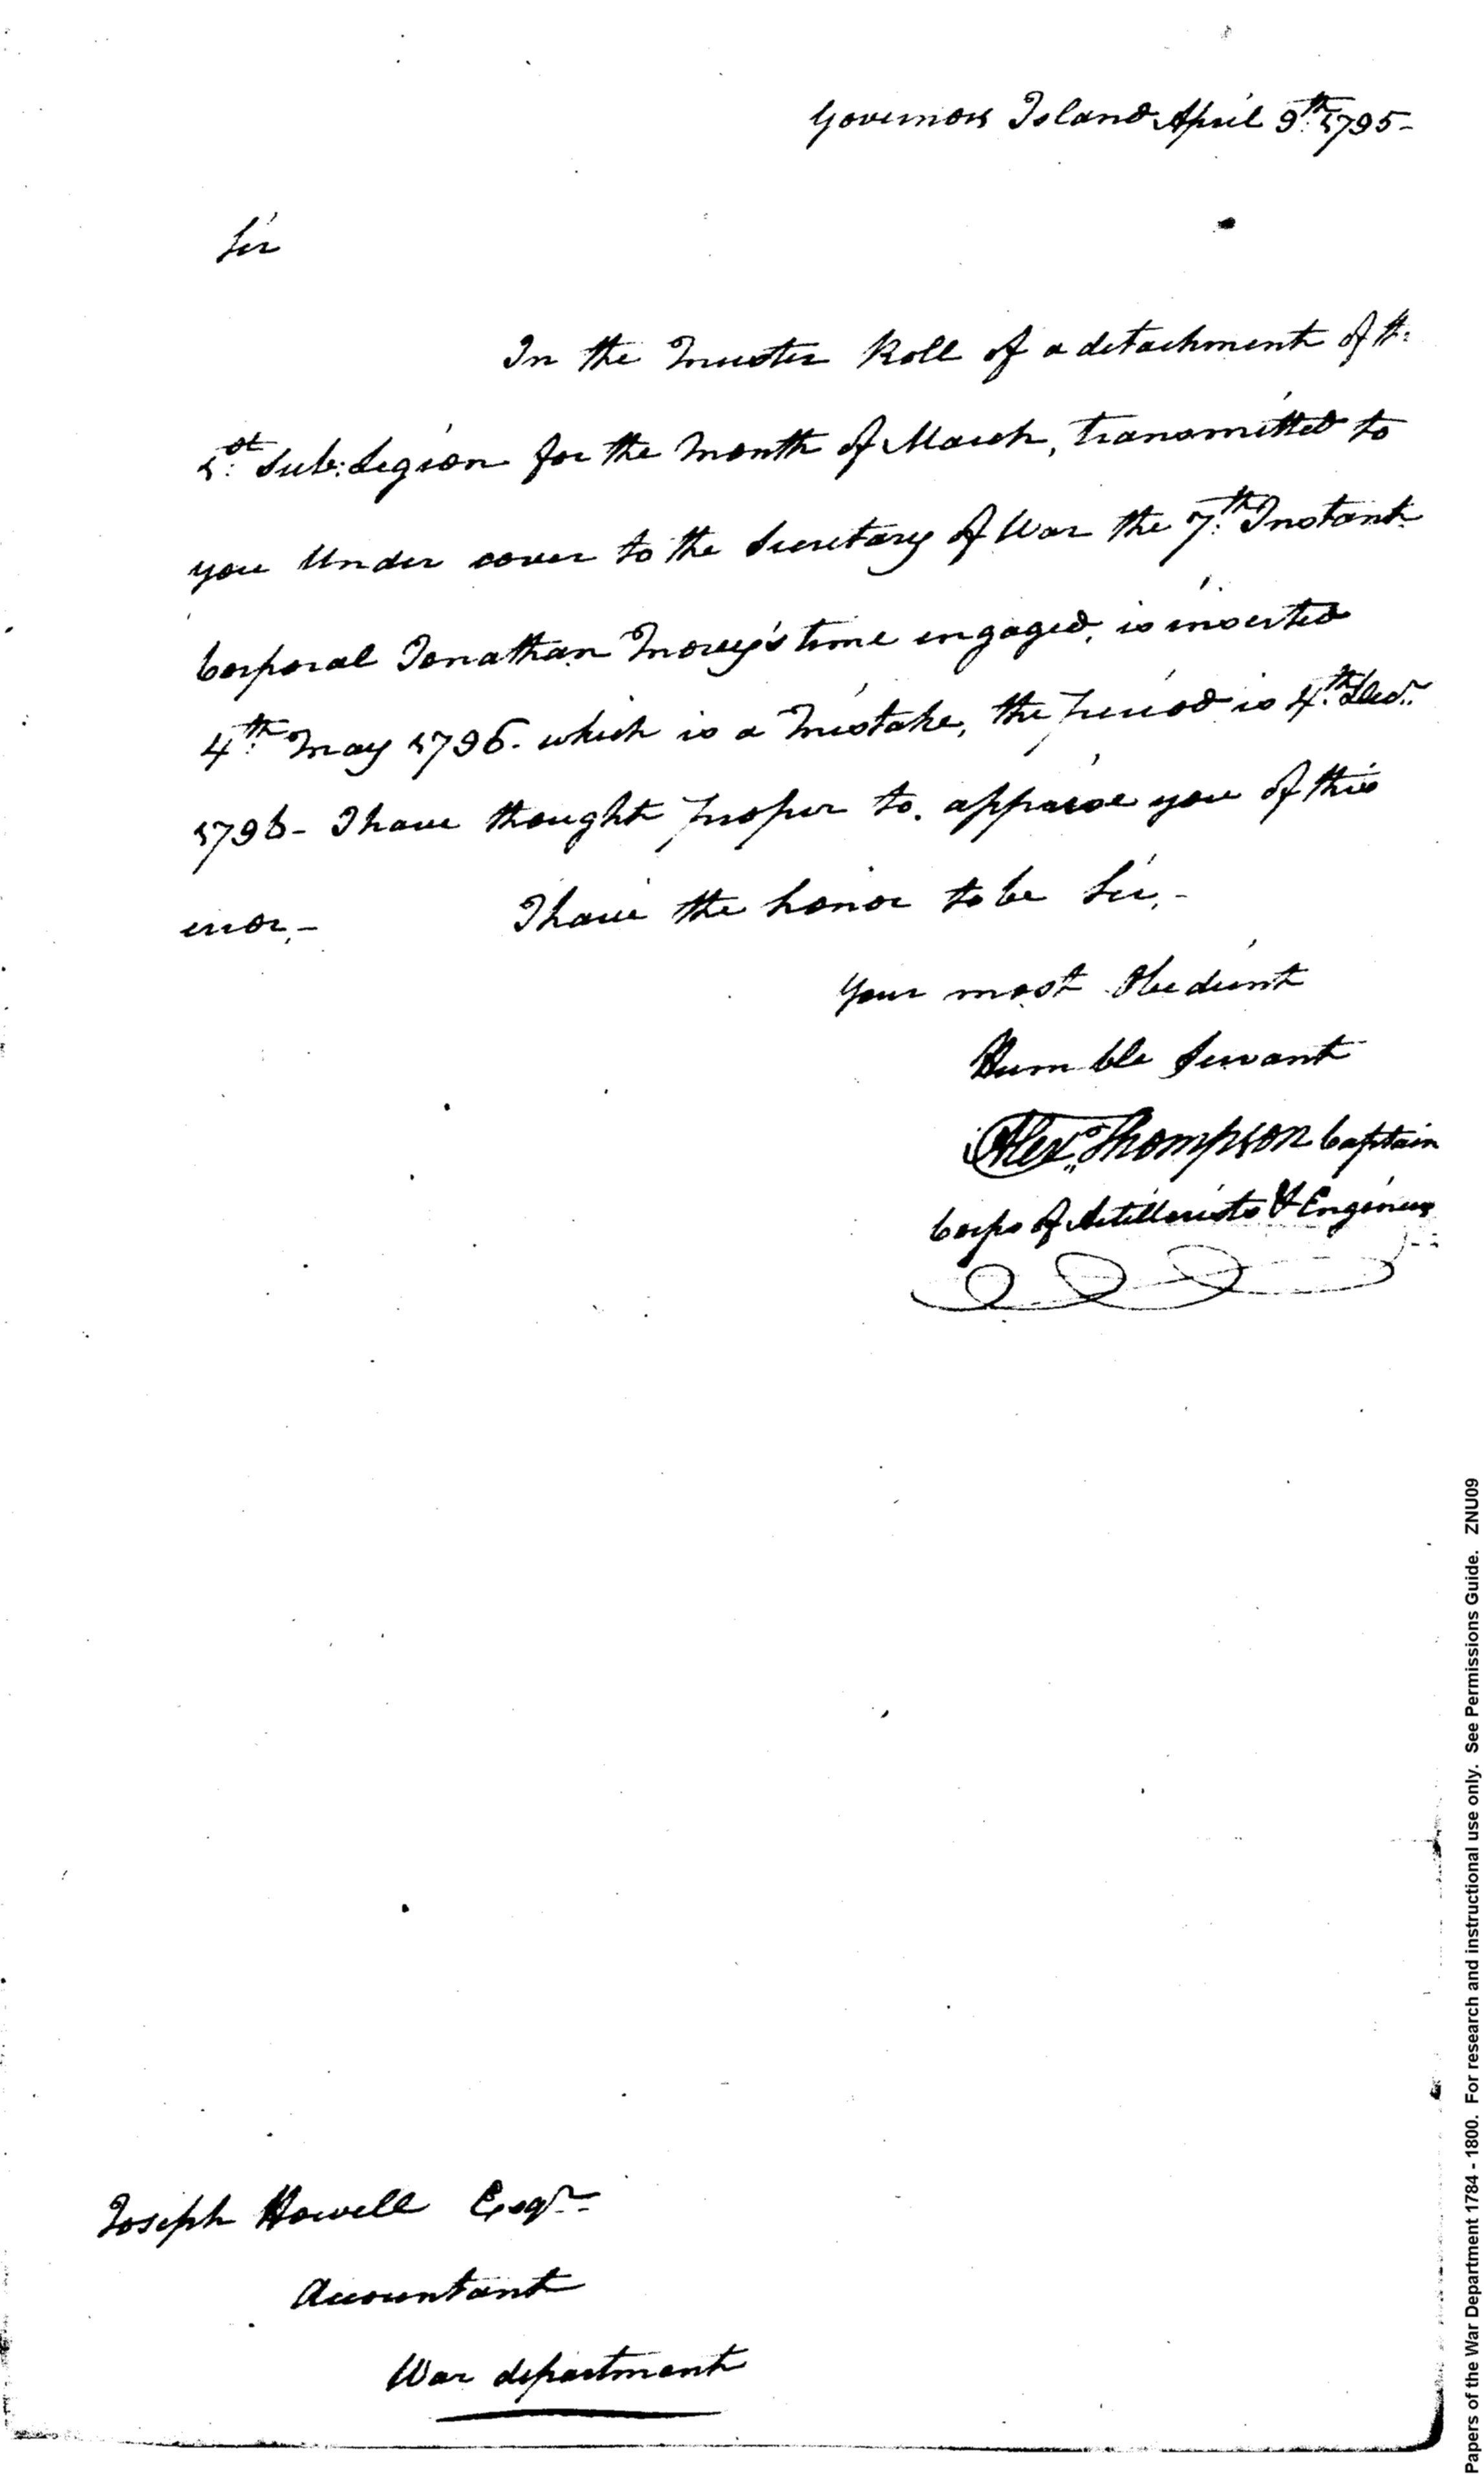 Governors Island April 9th. 1795-
Sir
In the Muster Roll of a detachment of th:
1st. Sub: Legion for the Month of March, transmitted to
you Under cover to the Secretary of War the 7th. Instant
Corporal Jonathan Morey's time engaged, is inserted
4th. May 1796. which is a Mistake, the period is 4th. Decr.
1796- I have thought proper to. appraise you of this
error,- I have the honor to be Sir,-
Your most Obedient
Humble Servant
Alexr. Thompson Captain
Corps of Artillerists & Engineers
Joseph Howell Esqr.
Accountant
War department
Papers of the War Department 1784 - 1800. For research and instructional use only. See Permissions Guide. ZNU09